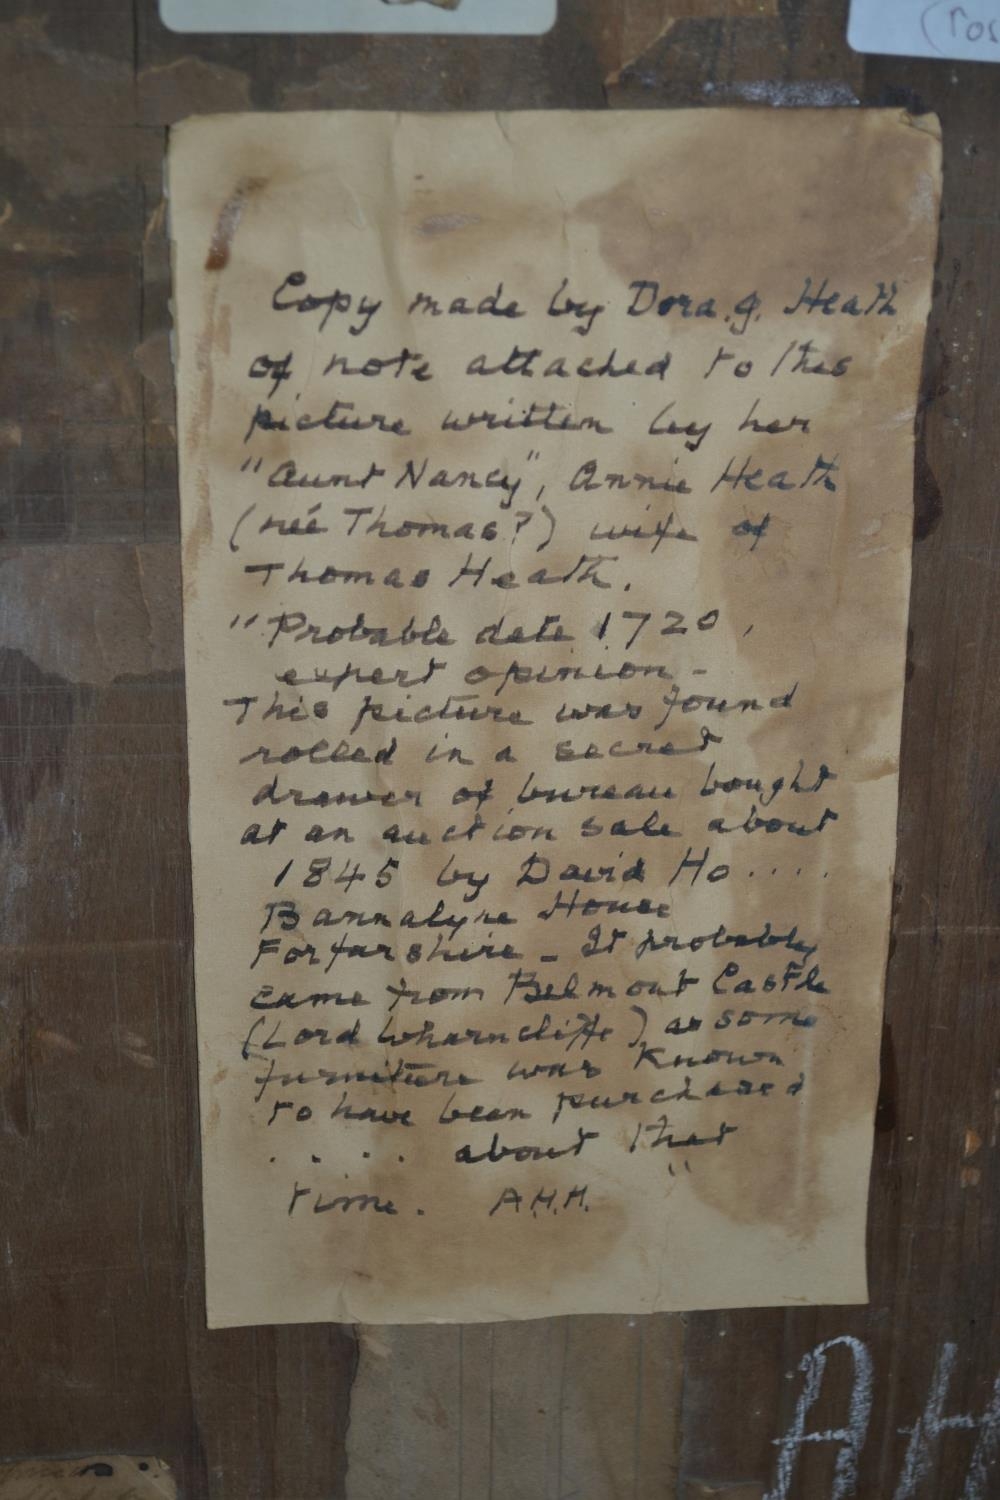 (ros
Copy made by Dora.g. Heath
of note attached to this
picture written by her
"Aunt Nancy", Annie Heath
(neé Thomas?) wife of
Thomas Heath.
"Probable date 1720,
expert opinion -
This picture was found
rolled in a secret
drawer of bureau bought
at an auction sale about
1845 by David Ho....
Bannalyne House
Forfarshire - It probably
came from Belmont Castle
(Lord Wharncliffe) as some
furniture was known
to have been purchased
.... about that
time. A.H.H. "
AH